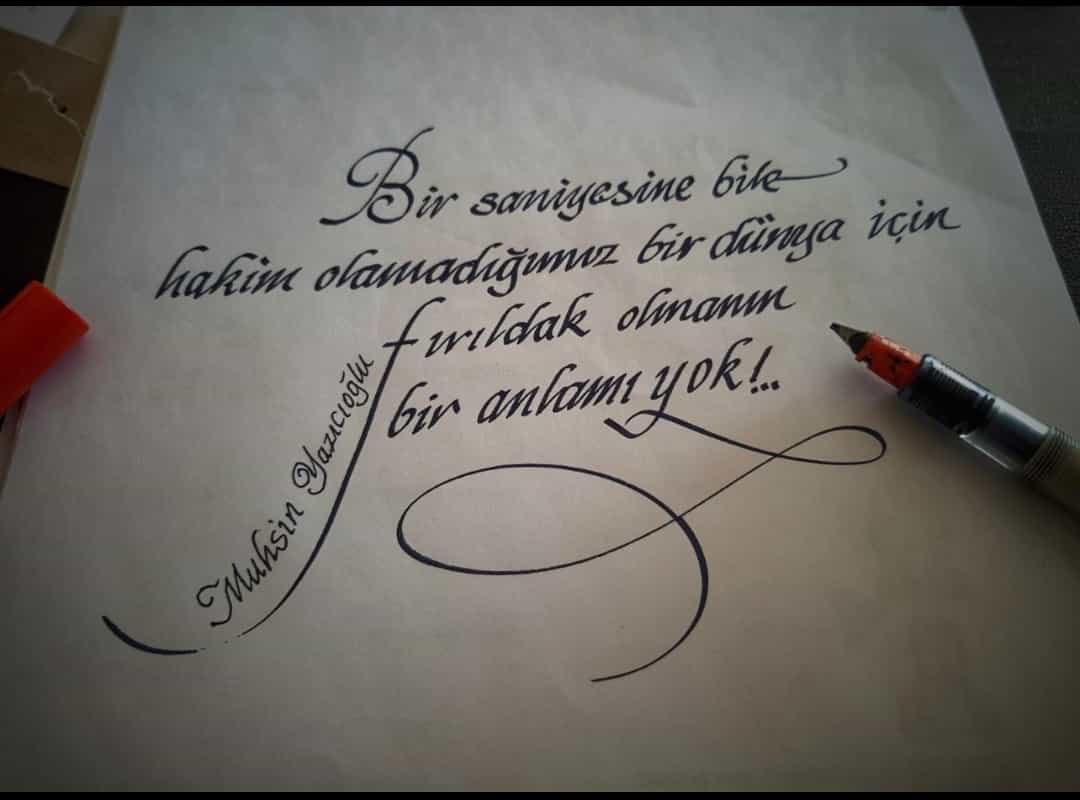 Bir saniyesine bile
hakim olamadığımız bir dünya için
fırıldak olmanın
bir anlamı yok!...
Muhsin Yazıcıoğlu